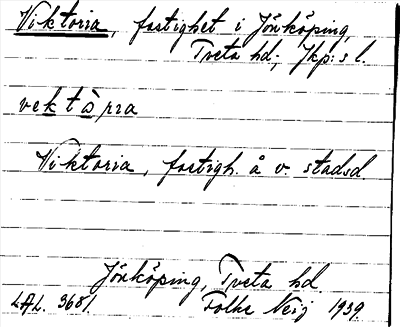 Viktoria, fastighet i Jönköping,
Tveta hd, Jkp:s l.
vektòpra
Viktoria, fastigh. å v. stadsd
Jönköping, Tveta hd
LAL. 3681. Folke Neij 1939